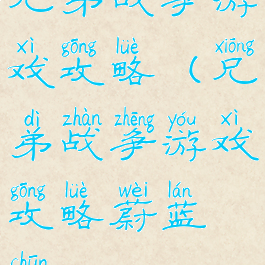 兄弟战争游
xì gōng lüè xiōng
戏攻略（兄
dì zhàn zhēng yóu xì
弟战争游戏
gōng lüè wèi lán
攻略蔚蓝
chūn